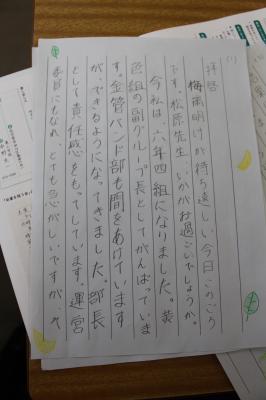 (1)
拝啓
梅雨明けが待ち遠しい今日このごろ
です。松原先生、いかがお過ごしでしょうか。
今私は、六年四組になりました。黄
色組の副グループ長としてがんばっていま
す。金管バンド部も間をあけています
が、できるようになってきました。部長
として責任感をもってしています。運営
委員にもなれ、とても忙がしいですが、